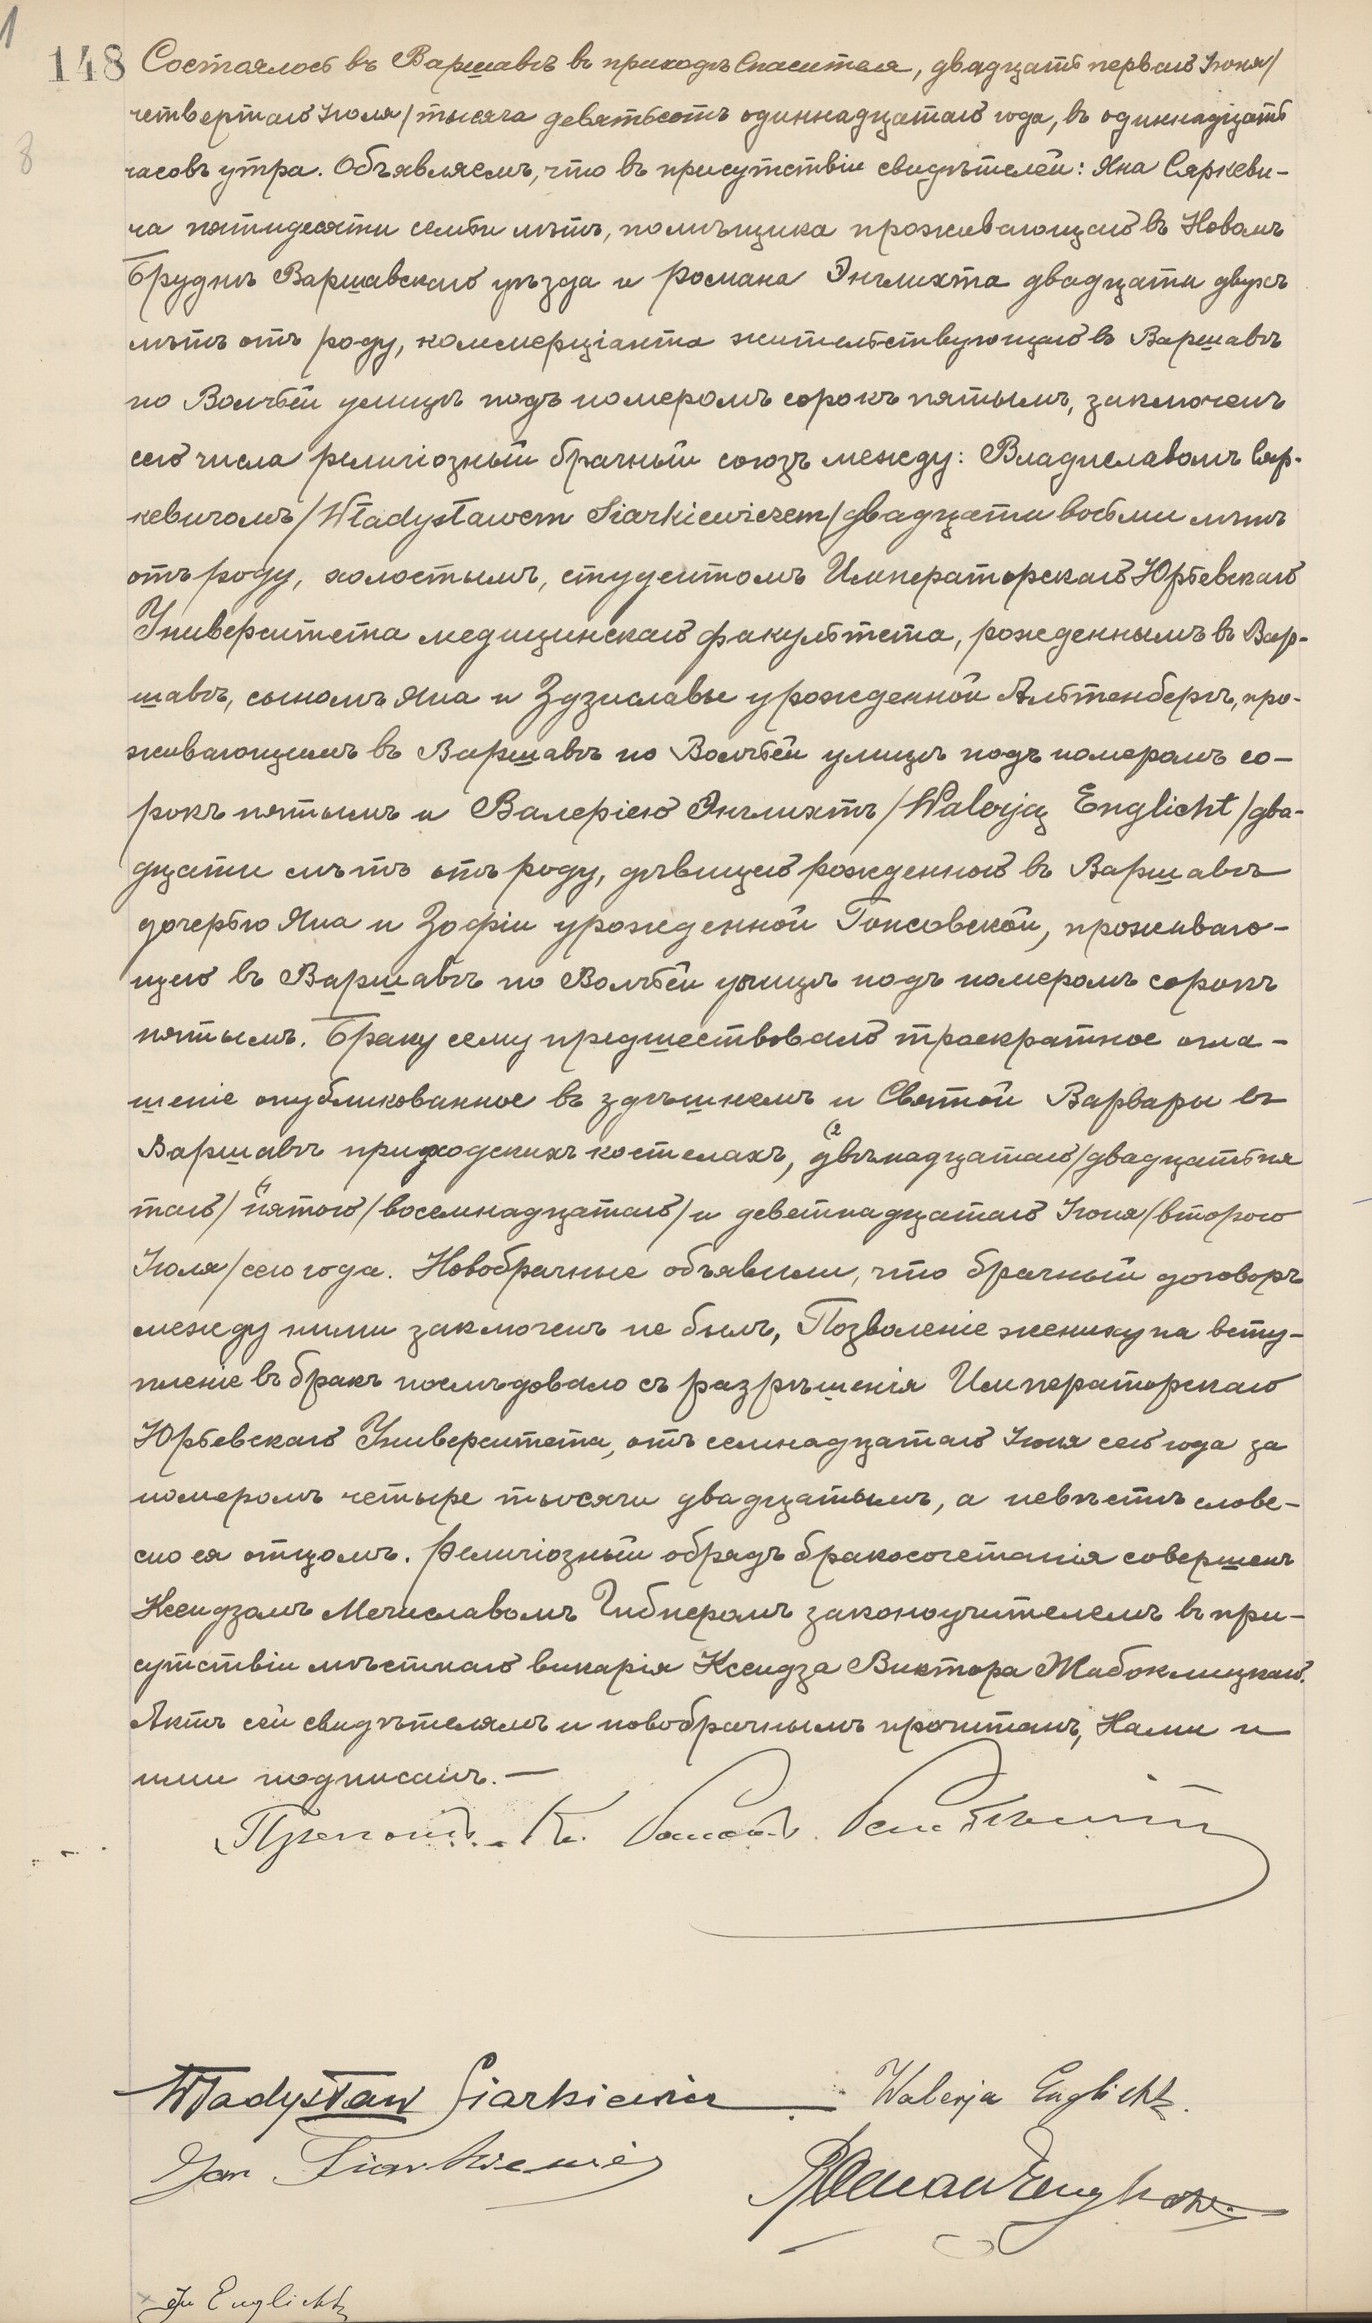 1
148 Состоялось въ Варшавѣ въ приходѣ Спасителя, двадцать перваго Іюня/
8
четвертаго Іюля/тысяча девятьсотъ одиннадцатаго года, въ одиннадцать
часовъ утра. Объявляемъ, что въ присутствіи свидѣтелей: Яна Сяркеви-
ча пятидесяти семи лѣтъ, помѣщика проживающаго въ Новомъ
Бруднѣ Варшавскаго уѣзда и Романа Энглихта двадцати двухъ
лѣтъ отъ роду, коммерціанта жительствующаго въ Варшавѣ
по Волчьей улицѣ подъ номеромъ сорокъ пятымъ, заключенъ
сего числа религіозный брачный союзъ между: Владиславомъ Сяр-
кевичомъ/Władysławem Siarkiewiczem/двадцати восьми лѣтъ
отъ роду, холостымъ, студентомъ Императорскаго Юрьевскаго
Университета медицинскаго факультета, рожденнымъ въ Вар-
шавѣ, сыномъ Яна и Здзиславы урожденной Альтенбергъ, про-
живающимъ въ Варшавѣ по Волчьей улицѣ подъ номеромъ со-
рокъ пятымъ и Валеріею Энглихтъ/Walerją Englicht/два-
дцати лѣтъ отъ роду, дѣвицею рожденною въ Варшавѣ
дочерью Яна и Зофіи урожденной Гонсовской, прожив­аю-
щею въ Варшавѣ по Волчьей улицѣ подъ номеромъ сорокъ
пятымъ. Браку сему предшествовало троекратное огла-
шеніе опубликованное въ здѣшнемъ и Святой Варвары въ
Варшавѣ приходскихъ костелахъ, двѣнадцатаго/двадцатьпя
таго/ пятого/восемнадцатаго/и девятнадцатаго Іюня/второго
Іюля/сего года. Новобрачные объявили, что брачный договоръ
между ними заключенъ не былъ, Позволеніе жениху на всту-
пленіе въ бракъ послѣдовало съ разрѣшенія Императорскаго
Юрьевскаго Университета, отъ семнадцатаго Іюня сего года за
номеромъ четыре тысячи двадцатымъ, а невѣстѣ слове-
сно ея отцомъ. Религіозный обрядъ бракосочетанія совершенъ
Ксендзомъ Мечиславомъ Гибнеромъ законоучителемъ въ при-
сутствіи мѣстнаго викарія Ксендза Виктора Жабоклицкаго.
Актъ сей свидѣтелямъ и новобрачнымъ прочитанъ, Нами и
ими подписанъ.—
Władysław Siarkiewicz Walerja Englicht
Jan Siarkiewicz
Roman Englicht
Jn Englicht